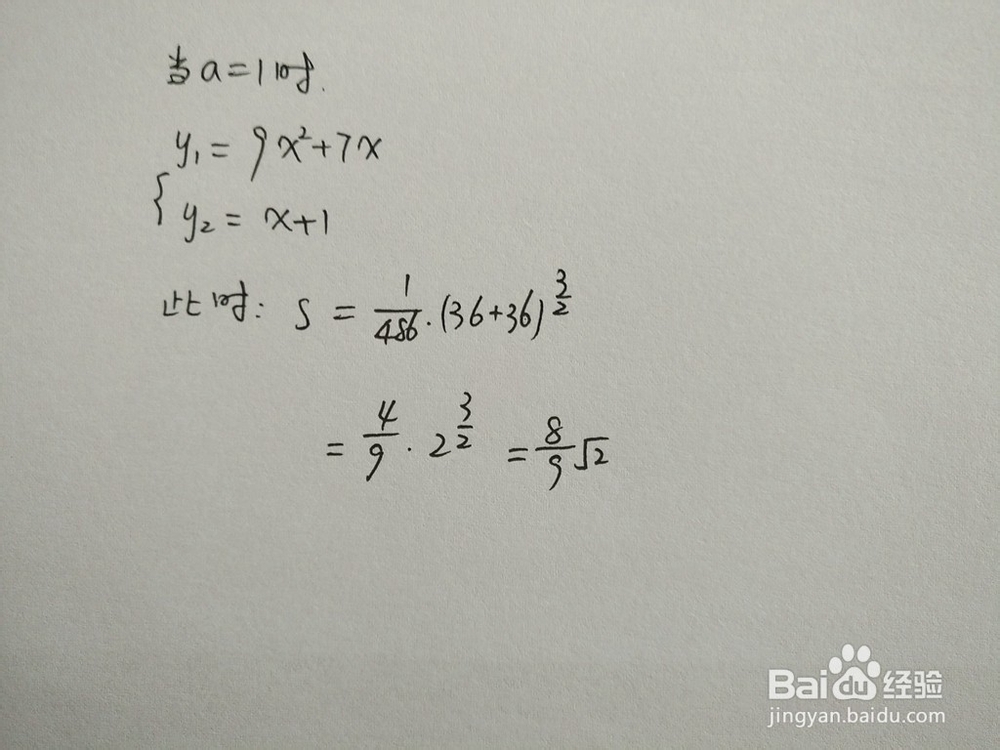 当a=1时.
y₁= 9x²+7x
{ y₂= x+1
此时: S = 1/486·(36+36)^(3/2)
= 4/9·2^(3/2) = 8/9√2
Baidu经验
jingyan.baidu.com